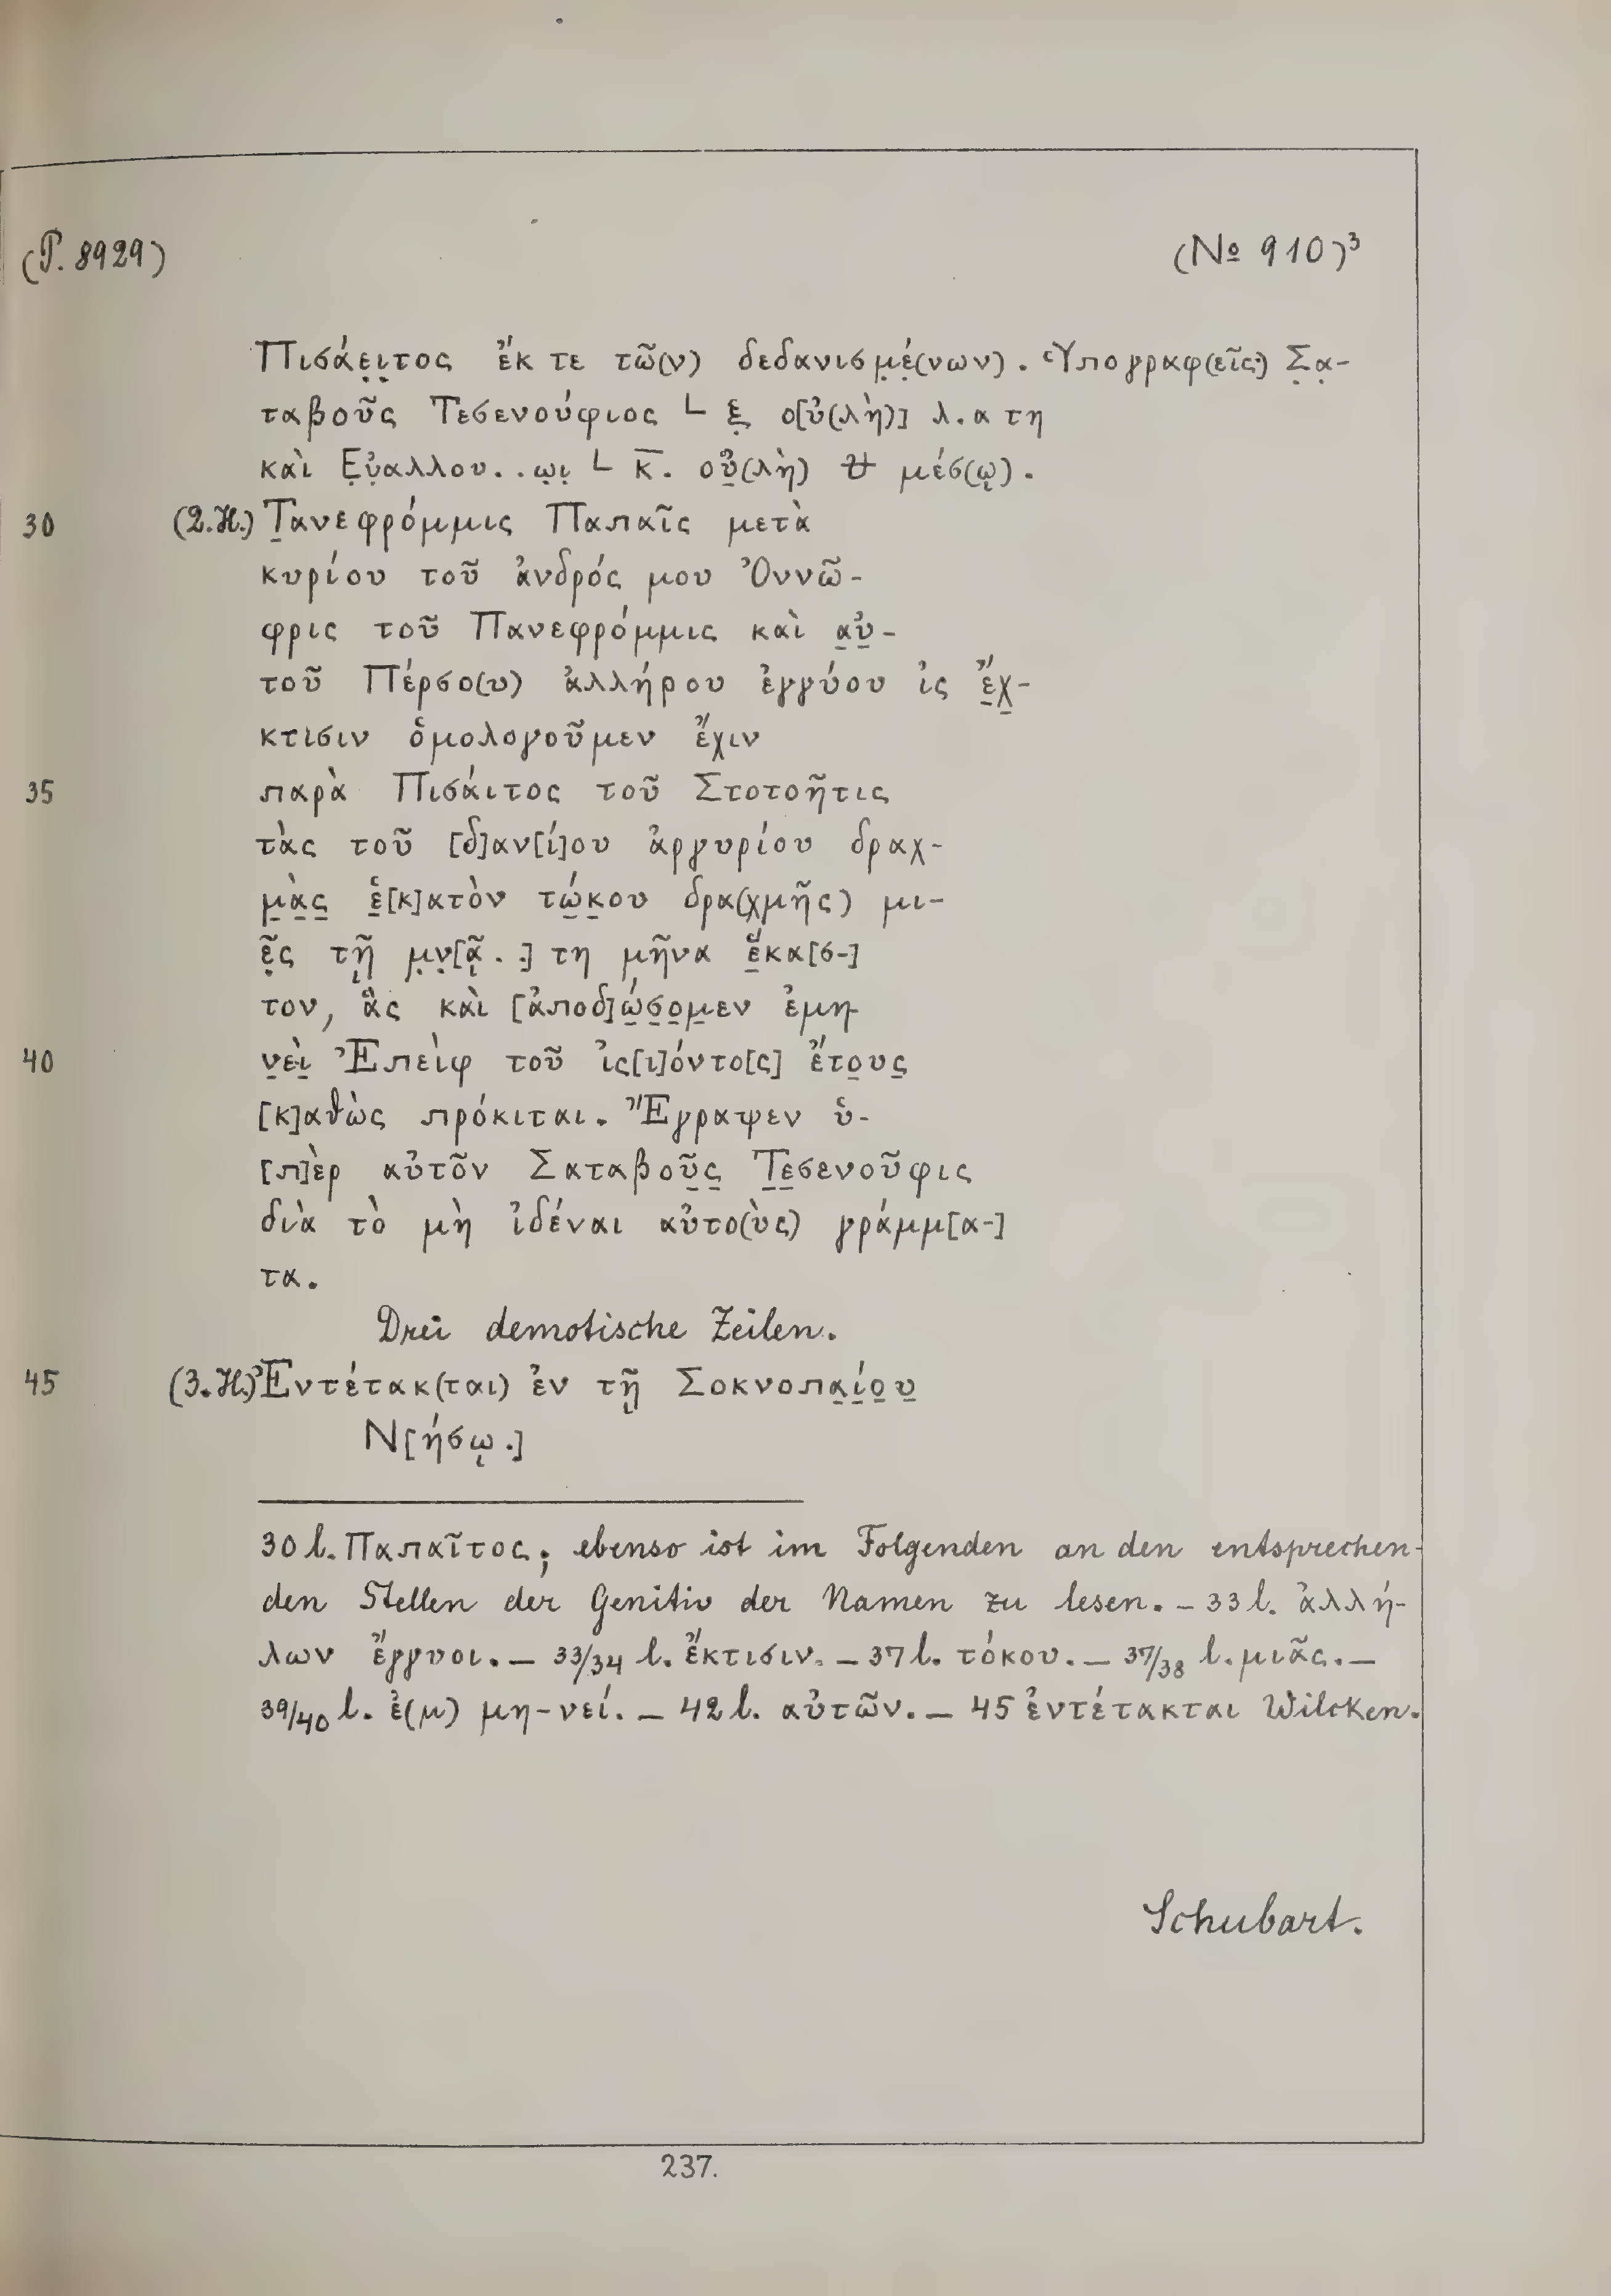 (P. 8929) (№ 910)³
Πισάε̣ι̣τος ἔκ τε τῶ(ν) δεδανισμ̣έ̣(νων). Ὑπογραφ(εῖς:) Σ̣α̣-
ταβοῦς Τεσενούφιος L ξ̣ ο[ὐ(λὴ)] λ.α τη
καὶ Ε̣ὐ̣αλλου. . ω̣ι̣ L κ̅. οὐ̣(λὴ) μέσ(ῳ).
30 (2.H.) Τ̣ανεφρόμμις Παπαῖς μετὰ
κυρίου τοῦ ἀνδρός μου Ὀννῶ-
φρις τοῦ Πανεφρόμμις καὶ α̣ὐ̣-
τοῦ Πέρσο(υ) ἀλλήρου ἐγγύου ἰς ἔ̣χ̣-
κτισιν ὁμολογοῦμεν ἔχιν
35 παρὰ Πισάιτος τοῦ Στοτοῆτις
τὰς τοῦ [δ]αν[ί]ου ἀργυρίου δραχ-
μ̣ὰ̣ς̣ ἑ̣[κ]ατὸν τώ̣κ̣ου δρα(χμῆς) μι-
ε̣͂ς τῇ μ̣ν̣[ᾷ . .] τη μῆνα ἕ̣κα[σ-]
τον, ἃς καὶ [ἀποδ]ώ̣σ̣ο̣μ̣εν ἐμη-
40 ν̣εὶ̣ Ἐπεὶφ τοῦ ἰς[ι]όντο[ς] ἔτο̣υς̣
[κ]αθὼς πρόκιται. Ἔγραψεν ὑ-
[π]ὲρ αὐτõν Σαταβοῦ̣ς̣ Τ̣ε̣σενοῦφις
διὰ τὸ μὴ ἰδέναι αὐτο(ὺς) γράμμ[α-]
τα.
Drei demotische Zeilen.
45 (3.H.) Ἐντέτακ(ται) ἐν τῇ Σοκνοπα̣ί̣ο̣υ̣
Ν[ήσῳ.]
30 l. Παπαῖτος; ebenso ist im Folgenden an den entsprechen-
den Stellen der Genitiv der Namen zu lesen. – 33 l. ἀλλή-
λων ἔγγυοι. – 33/34 l. ἔκτισιν. – 37 l. τόκου. – 37/38 l. μιᾶς. –
39/40 l. ἐ(μ) μη-νεί. – 42 l. αὐτῶν. – 45 ἐντέτακται Wilcken.
Schubart.
237.